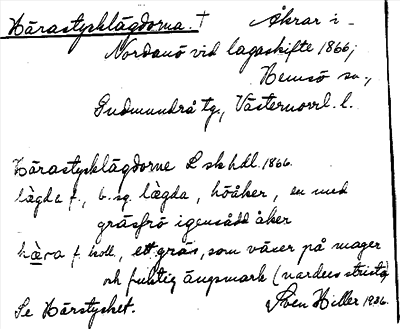 Härastycklägdorna. † Åkrar i
Nordanö vid lagaskifte 1866,
Hemsö sn.,
Gudmundrå tg., Västernorrl. l.
Härastycklägdorne L sk hdl. 1866.
lägda f., b. sg. lægda, höåker, en med
gräsfrö igensådd åker
hæra f. koll., ett gräs, som växer på mager
och fuktig ängsmark (nardus stricta)
Se Härstycket. Sven Hiller 1936.